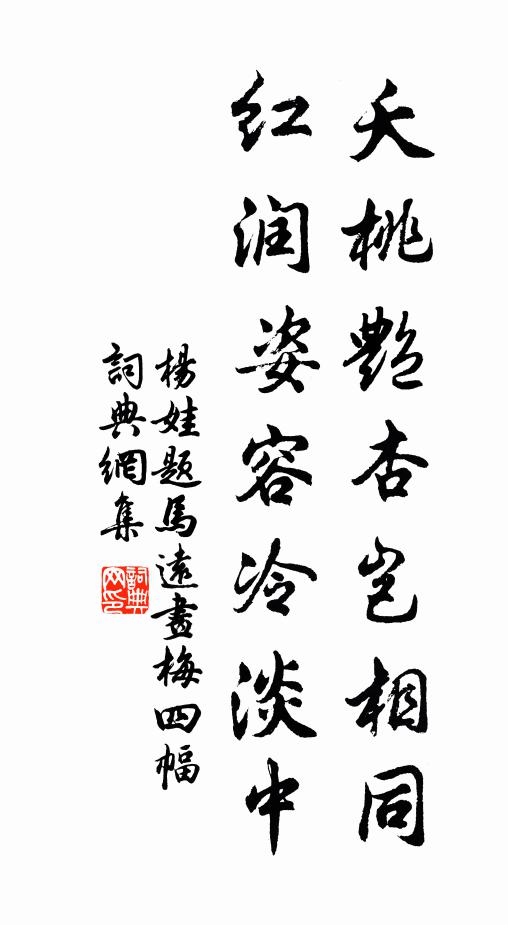 夭桃艷杏岂相同
红润姿容冷淡中
楊娃题馬遠畫梅四幅
詞典網集
詞典網印